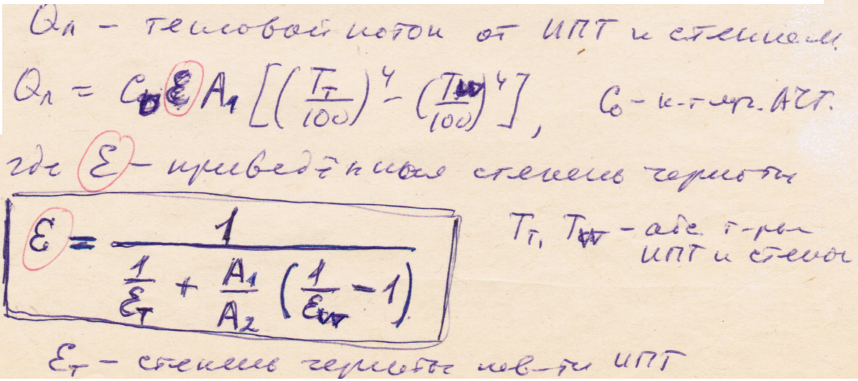 Qл – тепловой поток от ИПТ к стенкам
Qл = C₀ Ɛ A₁ [(Tт/100)⁴ – (Tw/100)⁴], C₀ – к-т луч. АЧТ.
где Ɛ – приведённая степень черноты
Ɛ = 1 / (1/Ɛт + A₁/A₂ (1/Ɛw – 1))
Tт, Tw – абс. т-ры
ИПТ и стенок
Ɛт – степень черноты пов-ти ИПТ